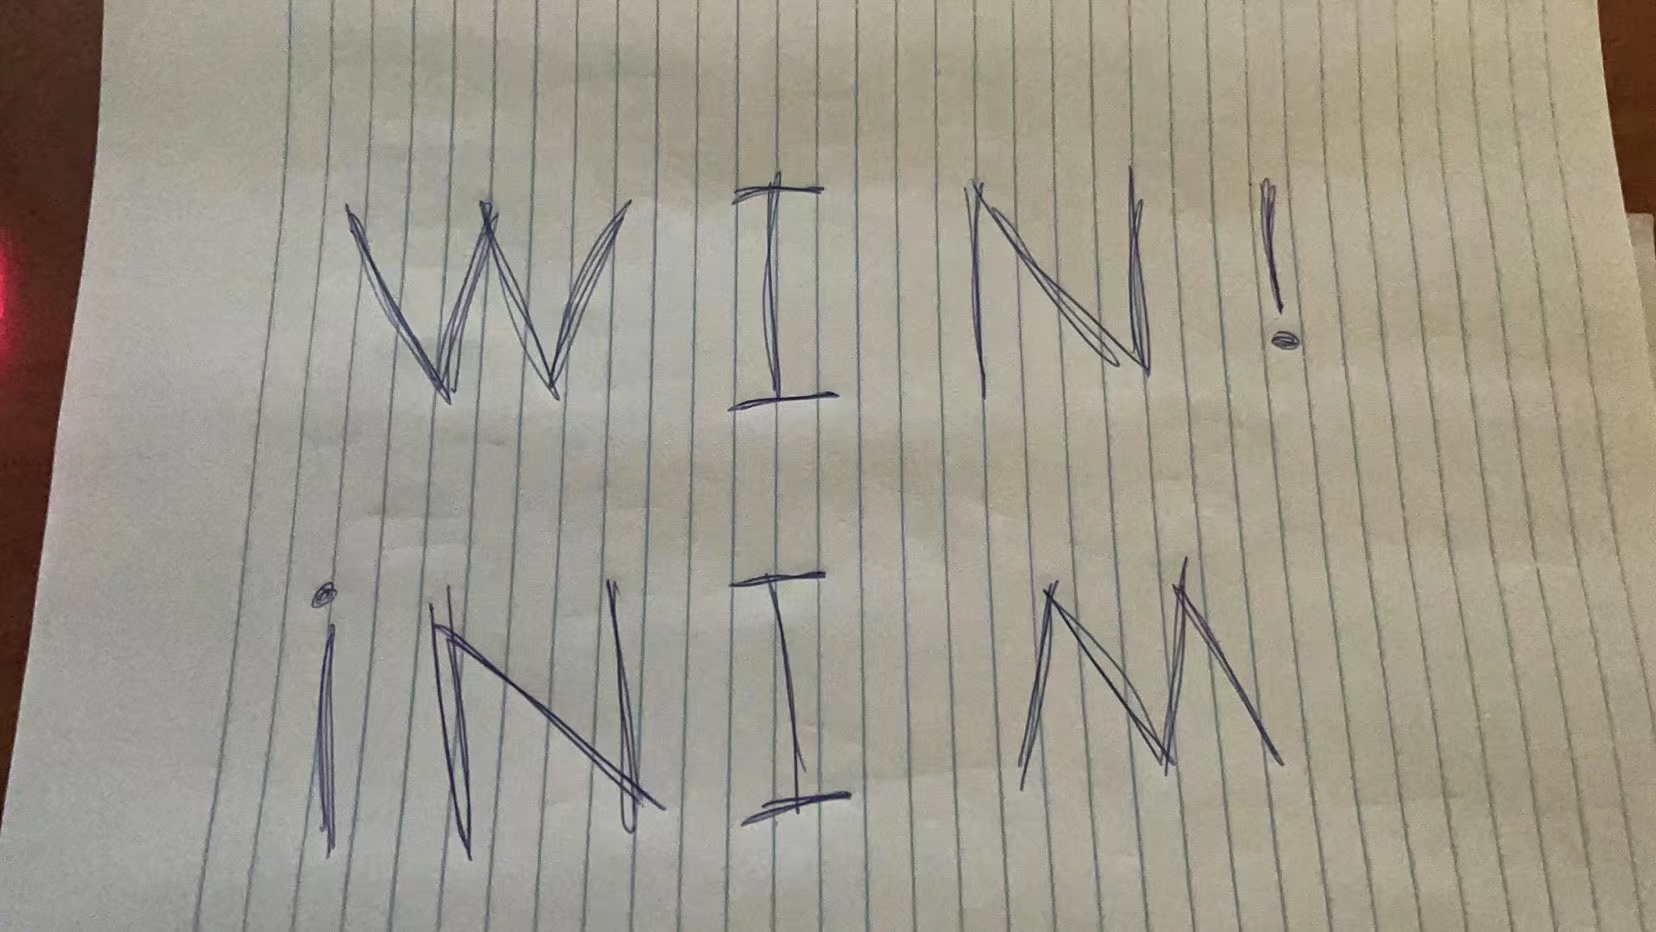 WIN!
¡NIM